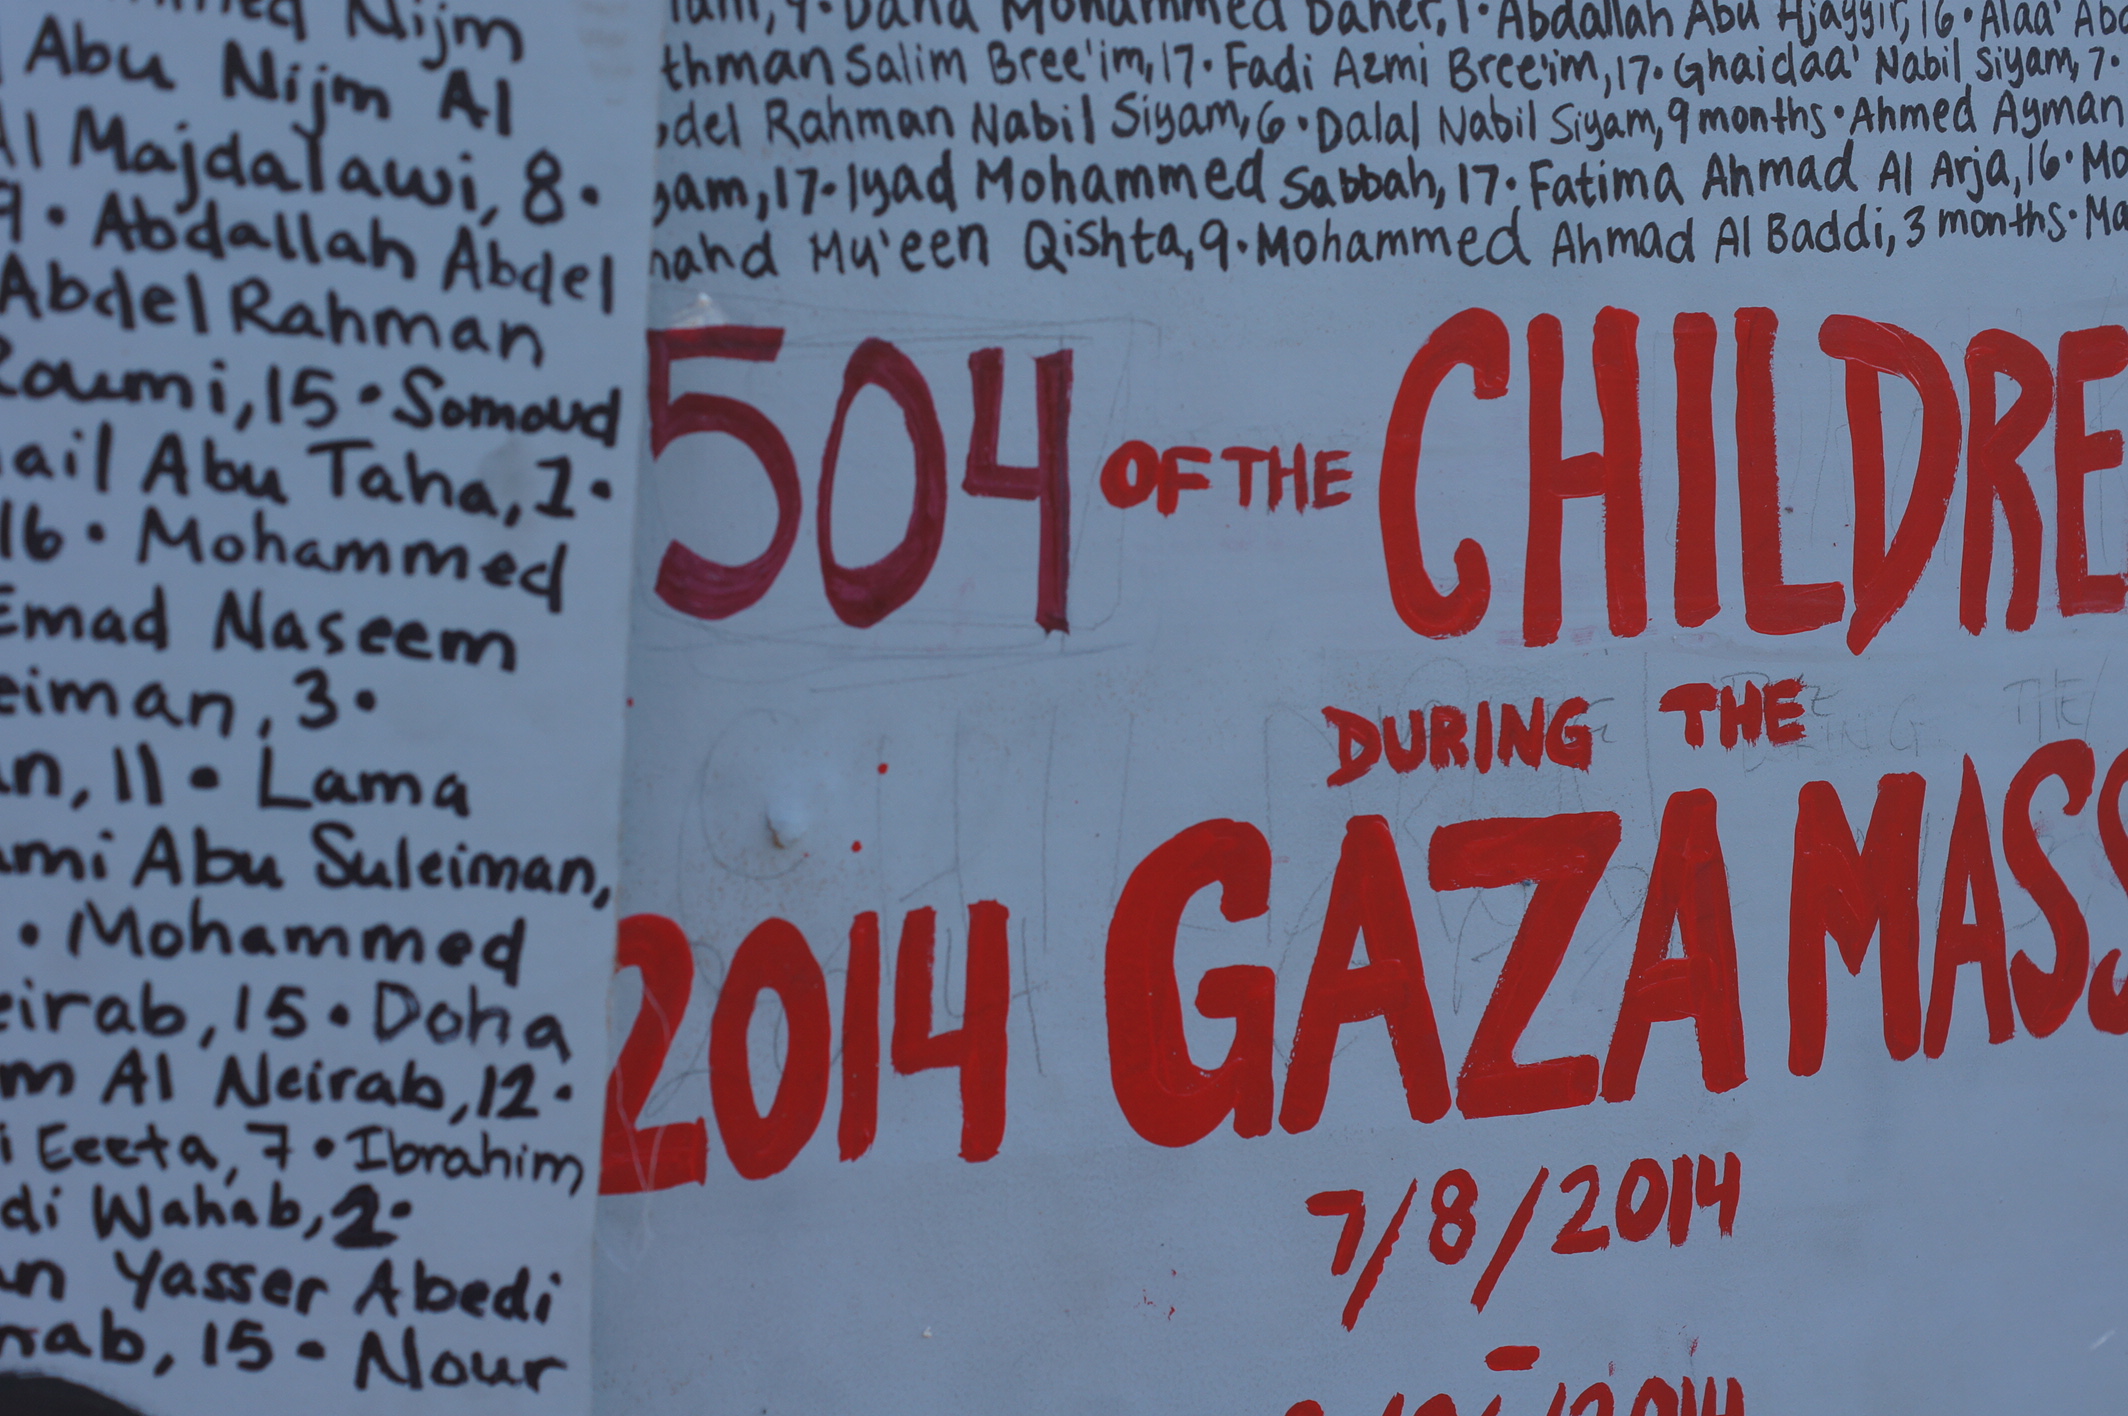 Nijm
Abu Nijm Al
Al Majdalawi, 8 •
9 • Abdallah Abdel
Abdel Rahman
Roumi, 15 • Somoud
Abu Taha, 1 •
16 • Mohammed
Emad Naseem
3 •
11 • Lama
Abu Suleiman,
• Mohammed
15 • Doha
Al Neirab, 12 •
Eeeta, 7 • Ibrahim
Wahab, 2 •
Yasser Abedi
15 • Nour
9 • Dana Mohammed Daher, 1 • Abdallah Abu Hjayyir, 16 • Alaa'
Salim Bree'im, 17 • Fadi Azmi Bree'im, 17 • Ghaidaa' Nabil Siyam, 7 •
Rahman Nabil Siyam, 6 • Dalal Nabil Siyam, 9 months • Ahmed Ayman
17 • Iyad Mohammed Sabbah, 17 • Fatima Ahmad Al Arja, 16 •
Mu'een Qishta, 9 • Mohammed Ahmad Al Baddi, 3 months •
504 OF THE CHILDRE
DURING THE
2014 GAZA MASS
7/8/2014
-